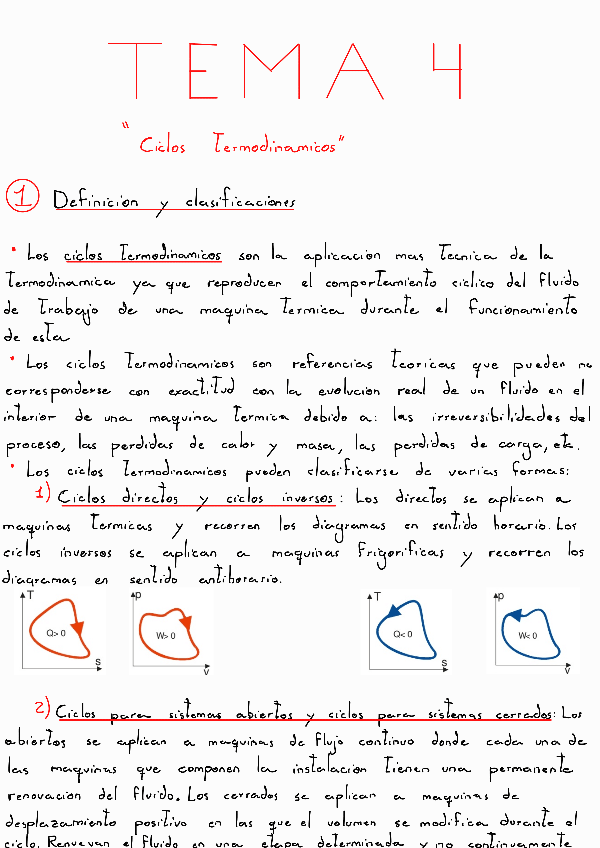 TEMA 4
"Ciclos Termodinamicos"
1 Definicion y clasificaciones
• Los ciclos Termodinamicos son la aplicacion mas Tecnica de la
Termodinamica ya que reproducen el comportamiento ciclico del fluido
de Trabajo de una maquina Termica durante el funcionamiento
de esta
• Los ciclos Termodinamicos son referencias Teoricas que pueden no
corresponderse con exactitud con la evolucion real de un fluido en el
interior de una maquina Termica debido a: las irreversibilidades del
proceso, las perdidas de calor y masa, las perdidas de carga, etc.
• Los ciclos Termodinamicos pueden clasificarse de varias formas:
1) Ciclos directos y ciclos inversos: Los directos se aplican a
maquinas Termicas y recorren los diagramas en sentido horario. Los
ciclos inversos se aplican a maquinas frigorificas y recorren los
diagramas en sentido antihorario.
T p T p
Q> 0 W> 0 Q< 0 W< 0
s v s v
2) Ciclos para sistemas abiertos y ciclos para sistemas cerrados: Los
abiertos se aplican a maquinas de flujo continuo donde cada una de
las maquinas que componen la instalacion Tienen una permanente
renovacion del fluido. Los cerrados se aplican a maquinas de
desplazamiento positivo en las que el volumen se modifica durante el
ciclo. Renuevan el fluido en una etapa determinada y no continuamente